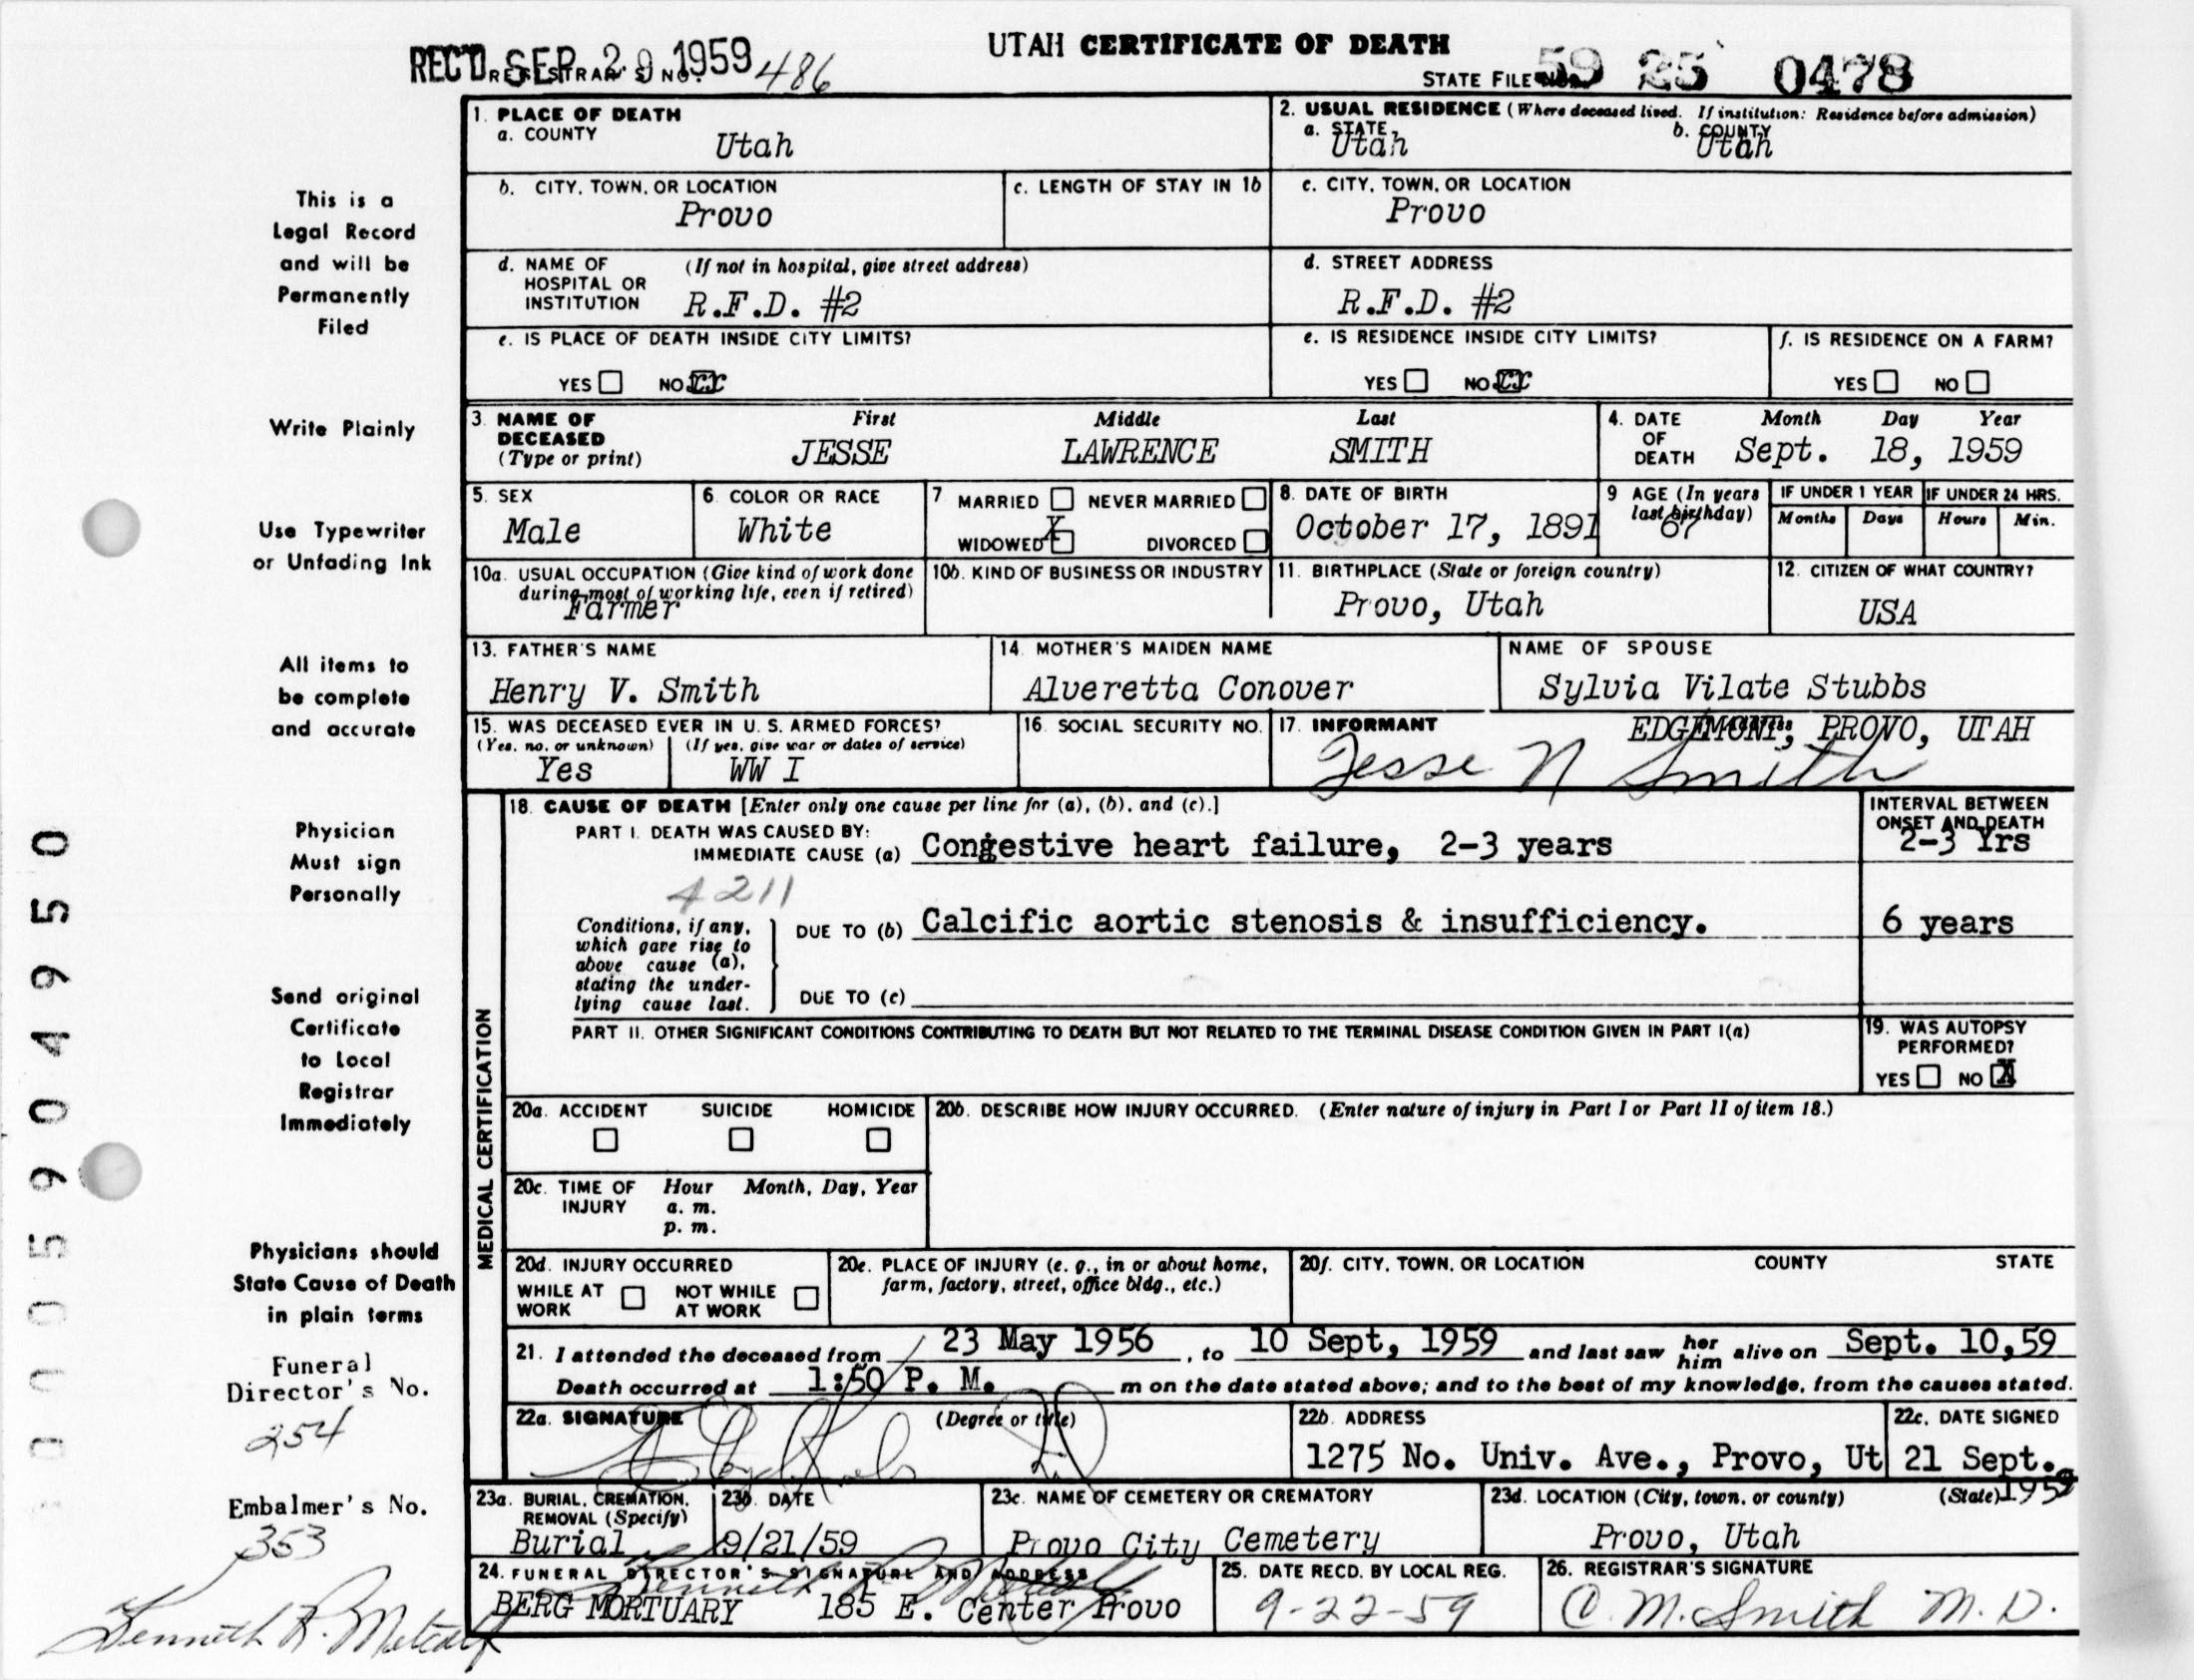 UTAH CERTIFICATE OF DEATH
REC'D SEP 29 1959 REGISTRAR'S NO. 486
STATE FILE NO. 59 25 0478
This is a
Legal Record
and will be
Permanently
Filed
Write Plainly
Use Typewriter
or Unfading Ink
All items to
be complete
and accurate
Physician
Must sign
Personally
Send original
Certificate
to Local
Registrar
Immediately
Physicians should
State Cause of Death
in plain terms
Funeral
Director's No.
254
Embalmer's No.
353
Kenneth R. Metcalf
005904950
1. PLACE OF DEATH
a. COUNTY
Utah
2. USUAL RESIDENCE (Where deceased lived. If institution: Residence before admission)
a. STATE b. COUNTY
Utah Utah
b. CITY, TOWN, OR LOCATION
Provo
c. LENGTH OF STAY IN 1b
c. CITY, TOWN, OR LOCATION
Provo
d. NAME OF (If not in hospital, give street address)
HOSPITAL OR
INSTITUTION R.F.D. #2
d. STREET ADDRESS
R.F.D. #2
e. IS PLACE OF DEATH INSIDE CITY LIMITS?
YES NO xx
e. IS RESIDENCE INSIDE CITY LIMITS?
YES NO xx
f. IS RESIDENCE ON A FARM?
YES NO
3. NAME OF DECEASED (Type or print)
First Middle Last
JESSE LAWRENCE SMITH
4. DATE OF DEATH
Month Day Year
Sept. 18, 1959
5. SEX
Male
6. COLOR OR RACE
White
7. MARRIED NEVER MARRIED
WIDOWED X DIVORCED
8. DATE OF BIRTH
October 17, 1891
9 AGE (In years
last birthday)
67
IF UNDER 1 YEAR IF UNDER 24 HRS.
Months Days Hours Min.
10a. USUAL OCCUPATION (Give kind of work done
during most of working life, even if retired)
Farmer
10b. KIND OF BUSINESS OR INDUSTRY
11. BIRTHPLACE (State or foreign country)
Provo, Utah
12. CITIZEN OF WHAT COUNTRY?
USA
13. FATHER'S NAME
Henry V. Smith
14. MOTHER'S MAIDEN NAME
Alveretta Conover
NAME OF SPOUSE
Sylvia Vilate Stubbs
15. WAS DECEASED EVER IN U. S. ARMED FORCES?
(Yes, no, or unknown) (If yes, give war or dates of service)
Yes WW I
16. SOCIAL SECURITY NO.
17. INFORMANT Address
EDGEMONT, PROVO, UTAH
Jesse N Smith
MEDICAL CERTIFICATION
18. CAUSE OF DEATH [Enter only one cause per line for (a), (b), and (c).]
INTERVAL BETWEEN
ONSET AND DEATH
PART I. DEATH WAS CAUSED BY:
IMMEDIATE CAUSE (a) Congestive heart failure, 2-3 years
2-3 Yrs
4211
Conditions, if any,
which gave rise to
above cause (a),
stating the under-
lying cause last.
DUE TO (b) Calcific aortic stenosis & insufficiency.
6 years
DUE TO (c)
PART II. OTHER SIGNIFICANT CONDITIONS CONTRIBUTING TO DEATH BUT NOT RELATED TO THE TERMINAL DISEASE CONDITION GIVEN IN PART I(a)
19. WAS AUTOPSY
PERFORMED?
YES NO X
20a. ACCIDENT SUICIDE HOMICIDE
20b. DESCRIBE HOW INJURY OCCURRED. (Enter nature of injury in Part I or Part II of item 18.)
20c. TIME OF Hour Month, Day, Year
INJURY a. m.
p. m.
20d. INJURY OCCURRED
WHILE AT NOT WHILE
WORK AT WORK
20e. PLACE OF INJURY (e. g., in or about home,
farm, factory, street, office bldg., etc.)
20f. CITY, TOWN, OR LOCATION COUNTY STATE
21. I attended the deceased from 23 May 1956, to 10 Sept, 1959 and last saw her him alive on Sept. 10,59
Death occurred at 1:50 P. M. m on the date stated above; and to the best of my knowledge, from the causes stated.
22a. SIGNATURE (Degree or title)
22b. ADDRESS
1275 No. Univ. Ave., Provo, Ut
22c. DATE SIGNED
21 Sept.,
1959
23a. BURIAL, CREMATION,
REMOVAL (Specify)
Burial
23b. DATE
9/21/59
23c. NAME OF CEMETERY OR CREMATORY
Provo City Cemetery
23d. LOCATION (City, town, or county) (State)
Provo, Utah
24. FUNERAL DIRECTOR'S SIGNATURE AND ADDRESS
Kenneth R. Metcalf
BERG MORTUARY 185 E. Center Provo
25. DATE RECD. BY LOCAL REG.
9-22-59
26. REGISTRAR'S SIGNATURE
C. M. Smith M. D.